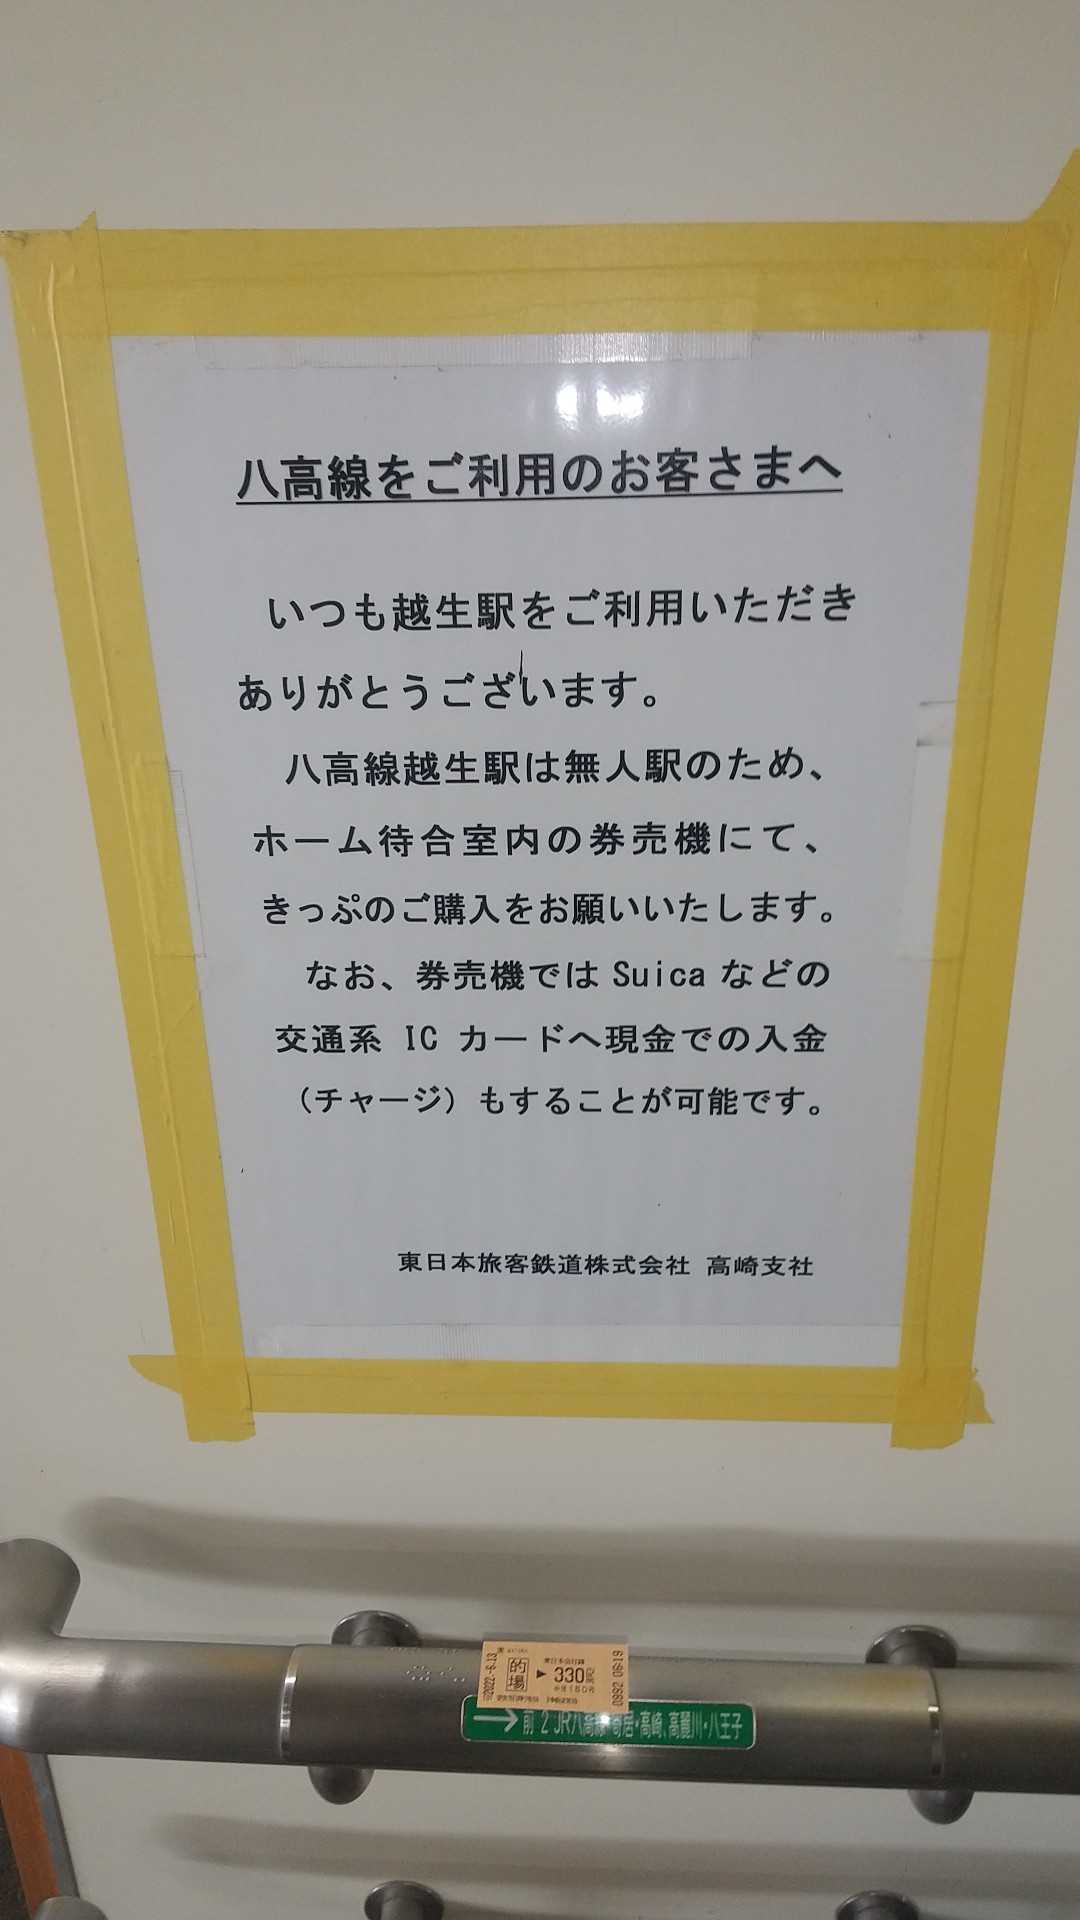 八高線をご利用のお客さまへ
いつも越生駅をご利用いただき
ありがとうございます。
八高線越生駅は無人駅のため、
ホーム待合室内の券売機にて、
きっぷのご購入をお願いいたします。
なお、券売機では Suica などの
交通系 IC カードへ現金での入金
（チャージ）もすることが可能です。
東日本旅客鉄道株式会社 高崎支社
2022.-6.13
的場 ▶ 330円
東日本会社線
→ 前 2 JR八高線 寄居・高崎、高麗川・八王子